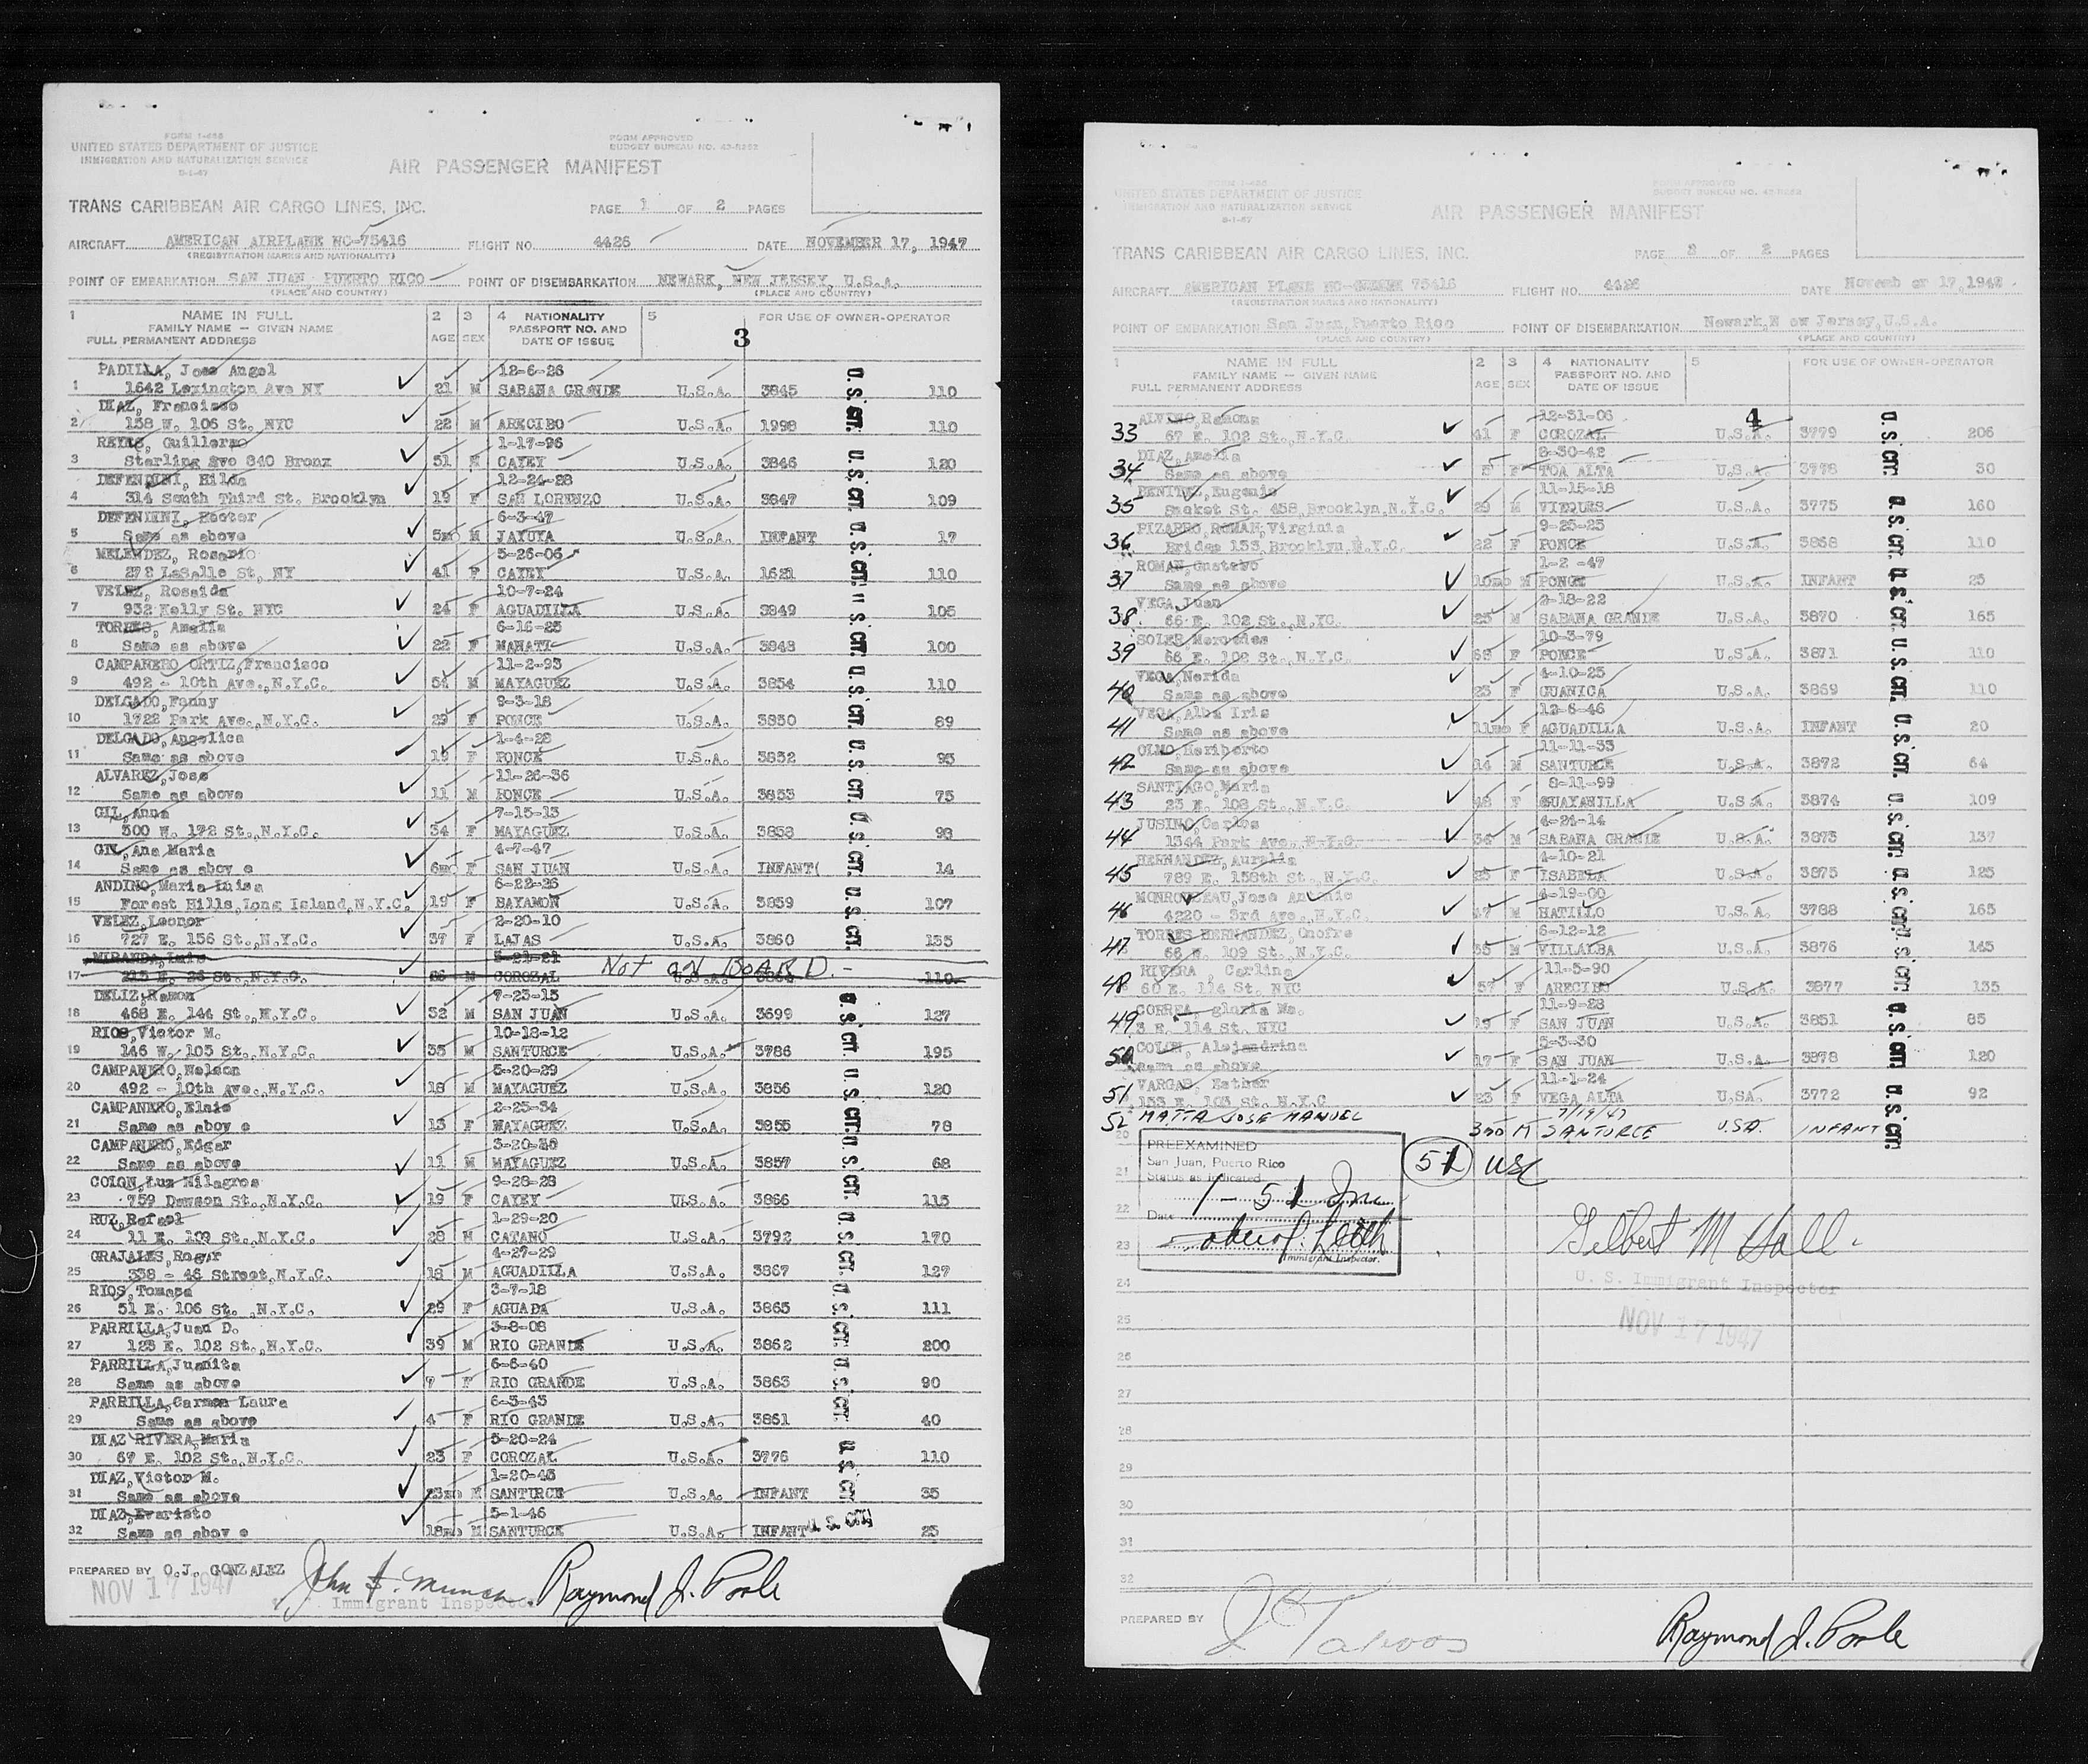 FORM I-466
UNITED STATES DEPARTMENT OF JUSTICE
IMMIGRATION AND NATURALIZATION SERVICE
5-1-47
FORM APPROVED
BUDGET BUREAU NO. 43-R252
AIR PASSENGER MANIFEST
TRANS CARIBBEAN AIR CARGO LINES, INC. PAGE 1 OF 2 PAGES
AIRCRAFT AMERICAN AIRPLANE NC-75416 FLIGHT NO. 4426 DATE NOVEMBER 17, 1947
(REGISTRATION MARKS AND NATIONALITY)
POINT OF EMBARKATION SAN JUAN, PUERTO RICO POINT OF DISEMBARKATION NEWARK, NEW JERSEY, U.S.A.
(PLACE AND COUNTRY) (PLACE AND COUNTRY)
1 NAME IN FULL 2 3 4 NATIONALITY 5 FOR USE OF OWNER-OPERATOR
FAMILY NAME — GIVEN NAME PASSPORT NO. AND
FULL PERMANENT ADDRESS AGE SEX DATE OF ISSUE 3
PADILLA, Jose Angel 12-6-26
1 1642 Lexington Ave NY 21 M SABANA GRANDE U.S.A. 3845 110
DIAZ, Francisco
2 158 W. 106 St. NYC 22 M ARECIBO U.S.A. 1998 110
REYES, Guillermo 1-17-96
3 Sterling Ave 840 Bronx 51 M CAYEY U.S.A. 3846 120
DEFENDINI, Hilda 12-24-28
4 314 South Third St. Brooklyn 19 F SAN LORENZO U.S.A. 3847 109
DEFENDINI, Hector 6-3-47
5 Same as above 5mo M JAYUYA U.S.A. INFANT 17
MELENDEZ, Rosario 5-26-06
6 272 LaSalle St, NY 41 F CAYEY U.S.A. 1621 110
VELEZ, Rosaida 10-7-24
7 932 Kelly St. NYC 24 F AGUADILLA U.S.A. 3849 105
TORRES, Amalia 6-16-25
8 Same as above 22 F MANATI U.S.A. 3848 100
CAMPANERO ORTIZ, Francisco 11-2-93
9 492 - 10th Ave., N.Y.C. 54 M MAYAGUEZ U.S.A. 3854 110
DELGADO, Fanny 9-3-18
10 1722 Park Ave., N.Y.C. 29 F PONCE U.S.A. 3850 89
DELGADO, Angelica 1-4-28
11 Same as above 19 F PONCE U.S.A. 3852 93
ALVAREZ, Jose 11-26-36
12 Same as above 11 M PONCE U.S.A. 3853 75
GIL, Anna 7-15-13
13 500 W. 172 St., N.Y.C. 34 F MAYAGUEZ U.S.A. 3858 98
GIL, Ana Maria 4-7-47
14 Same as abov e 6mo F SAN JUAN U.S.A. INFANT( 14
ANDINO, Maria Luisa 6-22-26
15 Forest Hills, Long Island, N.Y.C. 19 F BAYAMON U.S.A. 3859 107
VELEZ, Leonor 2-20-10
16 727 E. 156 St., N.Y.C. 37 F LAJAS U.S.A. 3860 135
MIRANDA, Luis 5-21-21 Not on BOARD.
17 215 E. 26 St., N.Y.C. 26 M COROZAL U.S.A. 110
DELIZ, Ramon 7-23-15
18 468 E. 144 St., N.Y.C. 32 M SAN JUAN U.S.A. 3699 127
RIOS, Victor M. 10-18-12
19 146 W. 105 St., N.Y.C. 35 M SANTURCE U.S.A. 3786 195
CAMPANERO, Nelson 5-20-29
20 492 - 10th Ave., N.Y.C. 18 M MAYAGUEZ U.S.A. 3856 120
CAMPANERO, Elaie 2-23-34
21 Same as abov e 13 F MAYAGUEZ U.S.A. 3855 78
CAMPANERO, Edgar 3-20-36
22 Same as above 11 M MAYAGUEZ U.S.A. 3857 68
COLON, Luz Milagros 9-28-28
23 759 Dawson St., N.Y.C. 19 F CAYEY U.S.A. 3866 115
RUZ, Rafael 1-29-20
24 11 E. 109 St., N.Y.C. 28 M CATANO U.S.A. 3792 170
GRAJALES, Roger 4-27-29
25 338 - 46 Street, N.Y.C. 18 M AGUADILLA U.S.A. 3867 127
RIOS, Tomasa 3-7-18
26 51 E. 106 St. , N.Y.C. 29 F AGUADA U.S.A. 3865 111
PARRILLA, Juan D. 3-8-08
27 123 E. 102 St., N.Y.C. 39 M RIO GRANDE U.S.A. 3862 200
PARRILLA, Juanita 6-6-40
28 Same as above 7 F RIO GRANDE U.S.A. 3863 90
PARRILLA, Carmen Laura 6-3-43
29 Same as above 4 F RIO GRANDE U.S.A. 3861 40
DIAZ RIVERA, Maria 5-20-24
30 67 E. 102 St., N.Y.C. 23 F COROZAL U.S.A. 3776 110
DIAZ, Victor M. 1-20-46
31 Same as above 23mo M SANTURCE U.S.A. INFANT 35
DIAZ, Evaristo 5-1-46
32 Same as abov e 18mo M SANTURCE U.S.A. INFANT 25
U.S. CIT.
PREPARED BY O.J. GONZALEZ
NOV 17 1947
Immigrant Inspector
Raymond J. Poole
UNITED STATES DEPARTMENT OF JUSTICE
IMMIGRATION AND NATURALIZATION SERVICE
5-1-47
FORM APPROVED
BUDGET BUREAU NO. 43-R252
AIR PASSENGER MANIFEST
TRANS CARIBBEAN AIR CARGO LINES, INC. PAGE 2 OF 2 PAGES
AIRCRAFT AMERICAN PLANE NC- 75416 FLIGHT NO. 4426 DATE Novemb er 17, 1947
(REGISTRATION MARKS AND NATIONALITY)
POINT OF EMBARKATION San Juan, Puerto Rico POINT OF DISEMBARKATION Newark, N ew Jersey, U.S.A.
(PLACE AND COUNTRY) (PLACE AND COUNTRY)
1 NAME IN FULL 2 3 4 NATIONALITY 5 FOR USE OF OWNER-OPERATOR
FAMILY NAME — GIVEN NAME PASSPORT NO. AND
FULL PERMANENT ADDRESS AGE SEX DATE OF ISSUE
ALVINO, Ramona 12-31-06 4
33 67 E. 102 St., N.Y.C. 41 F COROZAL U.S.A. 3779 206
DIAZ, Amelia 8-30-42
34 Same as above 5 F TOA ALTA U.S.A. 3778 30
BENITEZ, Eugenio 11-15-18
35 Sacket St. 458, Brooklyn, N.Y.C. 29 M VIEQUES U.S.A. 3775 160
PIZARRO, ROMAN, Virginia 9-25-25
36 Bridge 153, Brooklyn N.Y.C. 22 F PONCE U.S.A. 3868 110
ROMAN, Gustavo 1-2 -47
37 Same as above 10mo M PONCE U.S.A. INFANT 25
VEGA, Juan 2-18-22
38 66 E. 102 St., N.YC. 25 M SABANA GRANDE U.S.A. 3870 165
SOLER, Mercedes 10-3-79
39 66 E. 102 St., N.Y.C. 68 F PONCE U.S.A. 3871 110
VEGA, Nerida 4-10-25
40 Same as above 23 F GUANICA U.S.A. 3869 110
VEGA, Alba Iris 12-6-46
41 Same as above 11mo F AGUADILLA U.S.A. INFANT 20
OLMO, Heriberto 11-11-33
42 Same as above 14 M SANTURCE U.S.A. 3872 64
SANTIAGO, Maria 8-11-99
43 23 E. 108 St., N.Y.C. 48 F GUAYANILLA U.S.A. 3874 109
JUSINO, Carlos 4-21-14
44 1344 Park Ave., N.Y.C. 34 M SABANA GRANDE U.S.A. 3873 137
HERNANDEZ, Aurelia 4-10-21
45 789 E. 158th St., N.Y.C. 25 F ISABELA U.S.A. 3875 125
MONROUZEAU, Jose Antonio 4-19-00
46 4220 - 3rd Ave., N.Y.C. 47 M HATILLO U.S.A. 3788 165
TORRES HERNANDEZ, Onofre 6-12-12
47 66 W. 109 St., N.Y.C. 35 M VILLALBA U.S.A. 3876 145
RIVERA , Carlina 11-5-90
48 60 E. 114 St. NYC 57 F ARECIBO U.S.A. 3877 135
CORREA, gloria Ma. 11-9-28
49 3 E. 114 St. NYC 19 F SAN JUAN U.S.A. 3851 85
COLON, Alejandrina 5-3-30
50 Same as above 17 F SAN JUAN U.S.A. 3878 120
VARGAS, Esther 11-1-24
51 153 E. 103 St. N.Y.C 23 F VEGA ALTA U.SA. 3772 92
52 MATTA JOSE MANUEL 7/19/47
20 3mo M SANTURCE U.S.A. INFANT
U.S. CIT.
PREEXAMINED
San Juan, Puerto Rico
Status as indicated
1 - 51
Date
Immigrant Inspector.
51 USC
Gilbert M Hall
U. S. Immigrant Inspector
NOV 17 1947
21
22
23
24
25
26
27
28
29
30
31
32
PREPARED BY
Raymond J. Poole